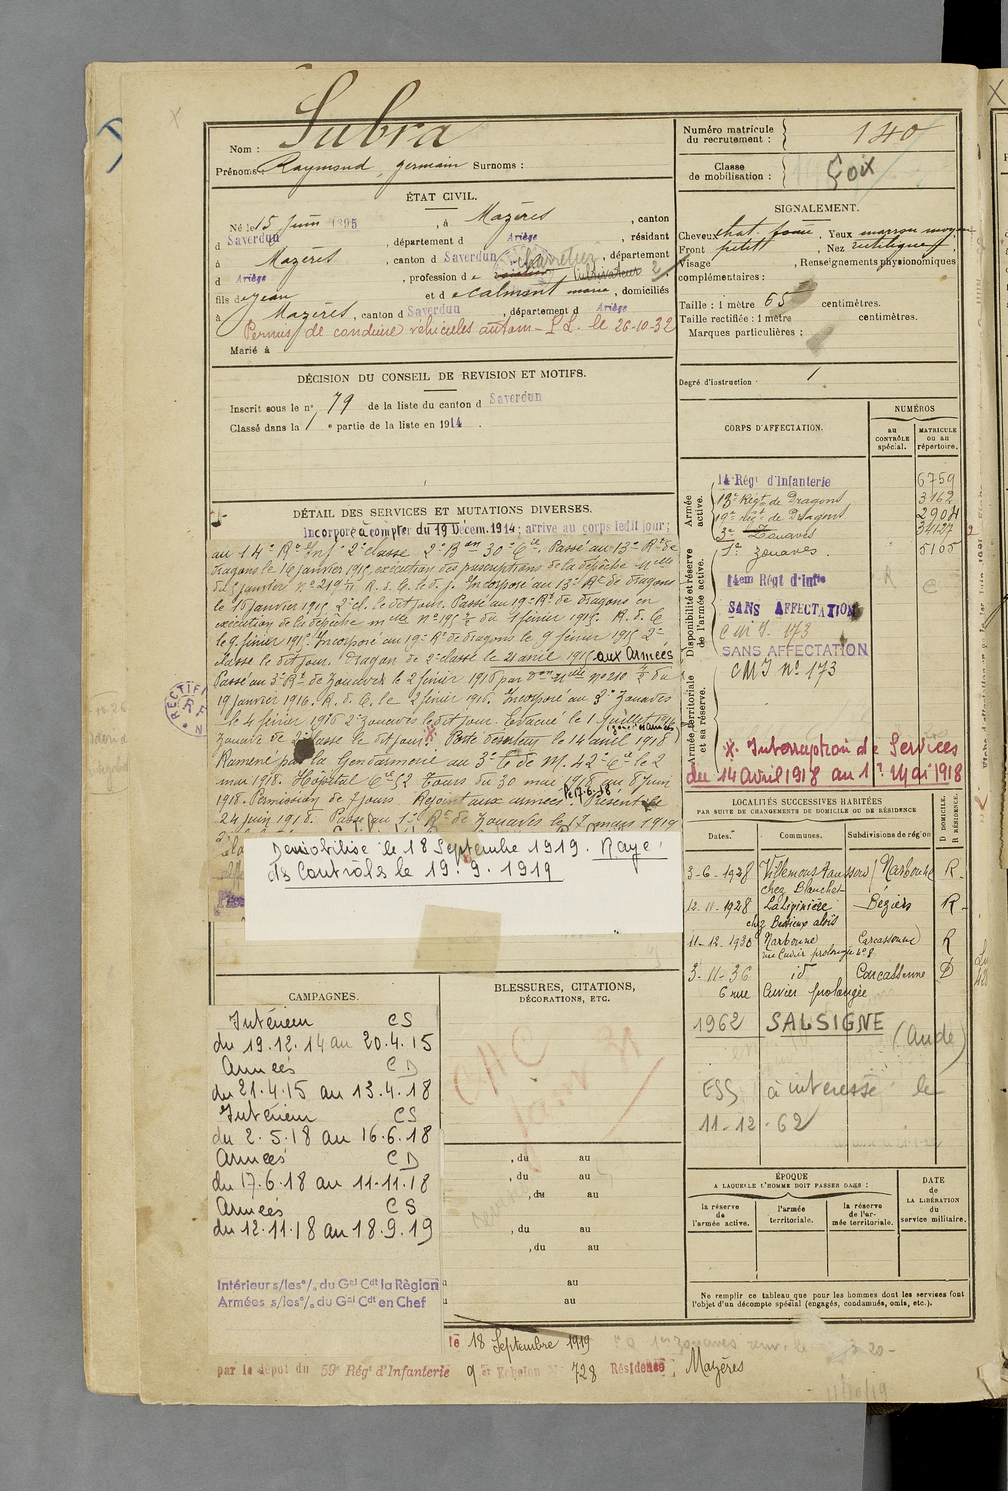 Nom : Subra
Prénoms : Raymond germain Surnoms :
Numéro matricule
du recrutement : 140
Classe
de mobilisation : Foix
ÉTAT CIVIL.
Né le 15 Juin 1895, à Mazères, canton
d Saverdun, département d Ariège, résidant
à Mazères, canton d Saverdun, département
d Ariège, profession de cultivateur
fils de Jean et de Calmont marie, domiciliés
à Mazères, canton d Saverdun, département d Ariège
Permis de conduire véhicules autom- P.L. le 26-10-32
Marié à
SIGNALEMENT.
Cheveux chat. foncé Yeux marron moyen
Front petit Nez rectiligne
Visage , Renseignements physionomiques
complémentaires :
Taille : 1 mètre 65 centimètres.
Taille rectifiée : 1 mètre centimètres.
Marques particulières :
Degré d'instruction
DÉCISION DU CONSEIL DE REVISION ET MOTIFS.
Inscrit sous le n° 79 de la liste du canton d Saverdun
Classé dans la 1e partie de la liste en 1914.
DÉTAIL DES SERVICES ET MUTATIONS DIVERSES.
Incorporé à compter du 19 Décem. 1914; arrive au corps ledit jour;
au 14e Rt Inf. 2e classe 2e Bon 30e Cie. Passé au 13e Rt de
dragons le 16 janvier 1915, exécution des prescriptions de la dépêche mlle
Incorporé au 13e Rt de dragons
le 15 janvier 1915 2e cl. le dit jour. Passé au 19e Rt de dragons en
exécution de la dépêche mlle du 1 février 1915. R. d. C.
le 9 février 1915. Incorporé au 19e Rt de dragons le 9 février 1915 2e
classe le dit jour. Dragon de 2e classe le 21 avril 1915 aux Armées
Passé au 3e Rt de Zouaves le 2 février 1916 par
19 janvier 1916. R. d. C. le 2 février 1916. Incorporé au 3e Zouaves
le 4 février 1916 2e zouaves le dit jour. Evacué le 1 Juillet 1916
Zouave de 2e classe le dit jour. Porté déserteur le 14 avril 1918
Ramené par la Gendarmerie au 3e Z. de M. 42e Cie le 2
mai 1918. Hôpital Tours du 30 mai 1918 au 8 juin
1918. Permission de 7 jours. Rejoint aux armées le 17-6-18. Présent le
24 juin 1918. Passé au 1er Rt de Zouaves le 17 mars 1919
Démobilisé le 18 Septembre 1919. Rayé
des Contrôles le 19.9.1919
CORPS D'AFFECTATION.
NUMÉROS
au
CONTRÔLE
spécial.
MATRICULE
ou au
répertoire.
Armée
active.
14e Régt d'Infanterie 6759
13e Régt de Dragons 3162
19e Régt de Dragons 2904
3e Zouaves 34127
1er Zouaves. 5105
Disponibilité et réserve
de l'armée active.
14em Régt d'Infie
SANS AFFECTATION
C M J. 173
SANS AFFECTATION
CMJ N° 173
Armée territoriale
et sa réserve.
X. Interruption de Services
du 14 Avril 1918 au 1er Mai 1918
LOCALITÉS SUCCESSIVES HABITÉES
PAR SUITE DE CHANGEMENTS DE DOMICILE OU DE RÉSIDENCE
Dates. Communes. Subdivisions de région
D DOMICILE.
R RÉSIDENCE.
3-6-1928 Villemoustaussou Narbonne R
chez Blanchet
12-11-1928 Béziers R
11-12-1930 Narbonne Carcassonne R
rue Cuvier prolongée n° 8
3-11-36 id Carcassonne D
6 rue Cuvier prolongée
1962 SALSIGNE (Aude)
ESS à interessé le
11-12-62
CAMPAGNES.
Intérieur CS
du 19.12.14 au 20.4.15
Armées CD
du 21.4.15 au 13.4.18
Intérieur CS
du 2.5.18 au 16.6.18
Armées CD
du 17.6.18 au 11.11.18
Armées CS
du 12.11.18 au 18.9.19
Intérieur s/les o/. du Gal Cdt la Règion
Armées s/les o/. du Gal Cdt en Chef
BLESSURES, CITATIONS,
DÉCORATIONS, ETC.
, du au
, du au
, du au
, du au
, du au
au
au
ÉPOQUE
A LAQUELLE L'HOMME DOIT PASSER DANS :
la réserve
de
l'armée active.
l'armée
territoriale.
la réserve
de l'ar-
mée territoriale.
DATE
de
LA LIBÉRATION
du
service militaire.
Ne remplir ce tableau que pour les hommes dont les services font
l'objet d'un décompte spécial (engagés, condamnés, omis, etc.).
le 18 Septembre 1919
par le dépôt du 59e Régt d'Infanterie 9 er Echelon N° 728 Résidence : Mazères